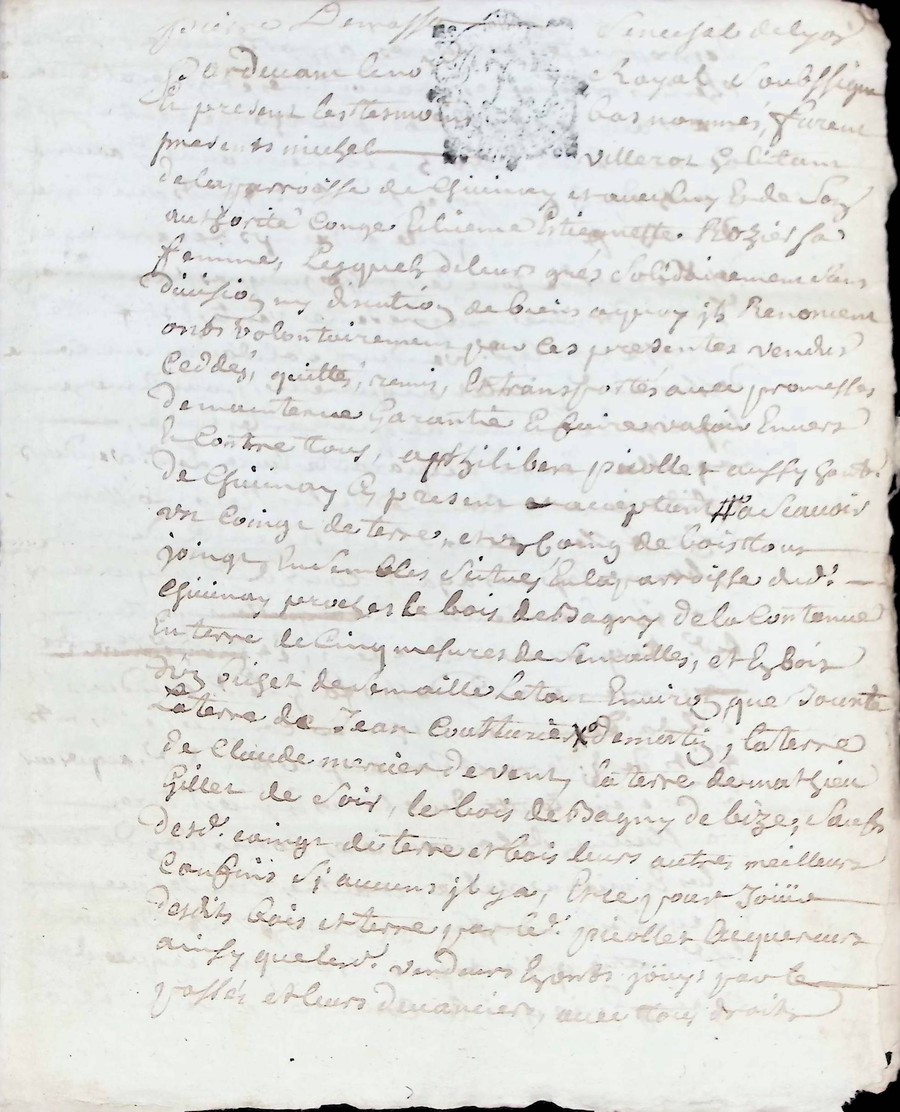 pierre Demasse Senechal de lyon
Pardevant le no Royal Soubssigne
Et present les tesmoins bas nommés, furent
presents michel villerot habitant
de la parroisse de Chiünay et avec luy Et de Son
authorité Congé Estienette Roziers sa
femme, Lesquels de leurs grés Solidairement Sans
division ny discution de biens aquoy ils Renoncent
onts volontairement par ces presentes vendus
Ceddés, quittés, remis, Et transportés avec promesses
de maintenue Garantie Et faire valoir Envers
Et Contre tous, a philibert picollet aussy habt.
de Chiünay Cy present acceptant a Scavoir
un Coingt de terre, et un Coing de bois tous
joingt Ensembles Scitués En la parroisse dud.
Chiünay proches le bois de Bagny de la Contenue
En terre de Cinq mesures de Semailles, et En bois
de Semaille Le tout Environ que Jouxte
La terre de Jean Cousturier de matin, la terre
de Claude mercier de vent, la terre de mathieu
Gillet de Soir, le bois de Bagny de bize, Saufs
desd. coingt de terre et bois leurs autres meilleurs
Confins Si aucuns il y a, Et ce pour Joüir
desdits bois et terre par led. picollet acquereurs
ainsy que lesd. vendeurs En onts joüys par le
passés et leurs devanciers, avec tous droits